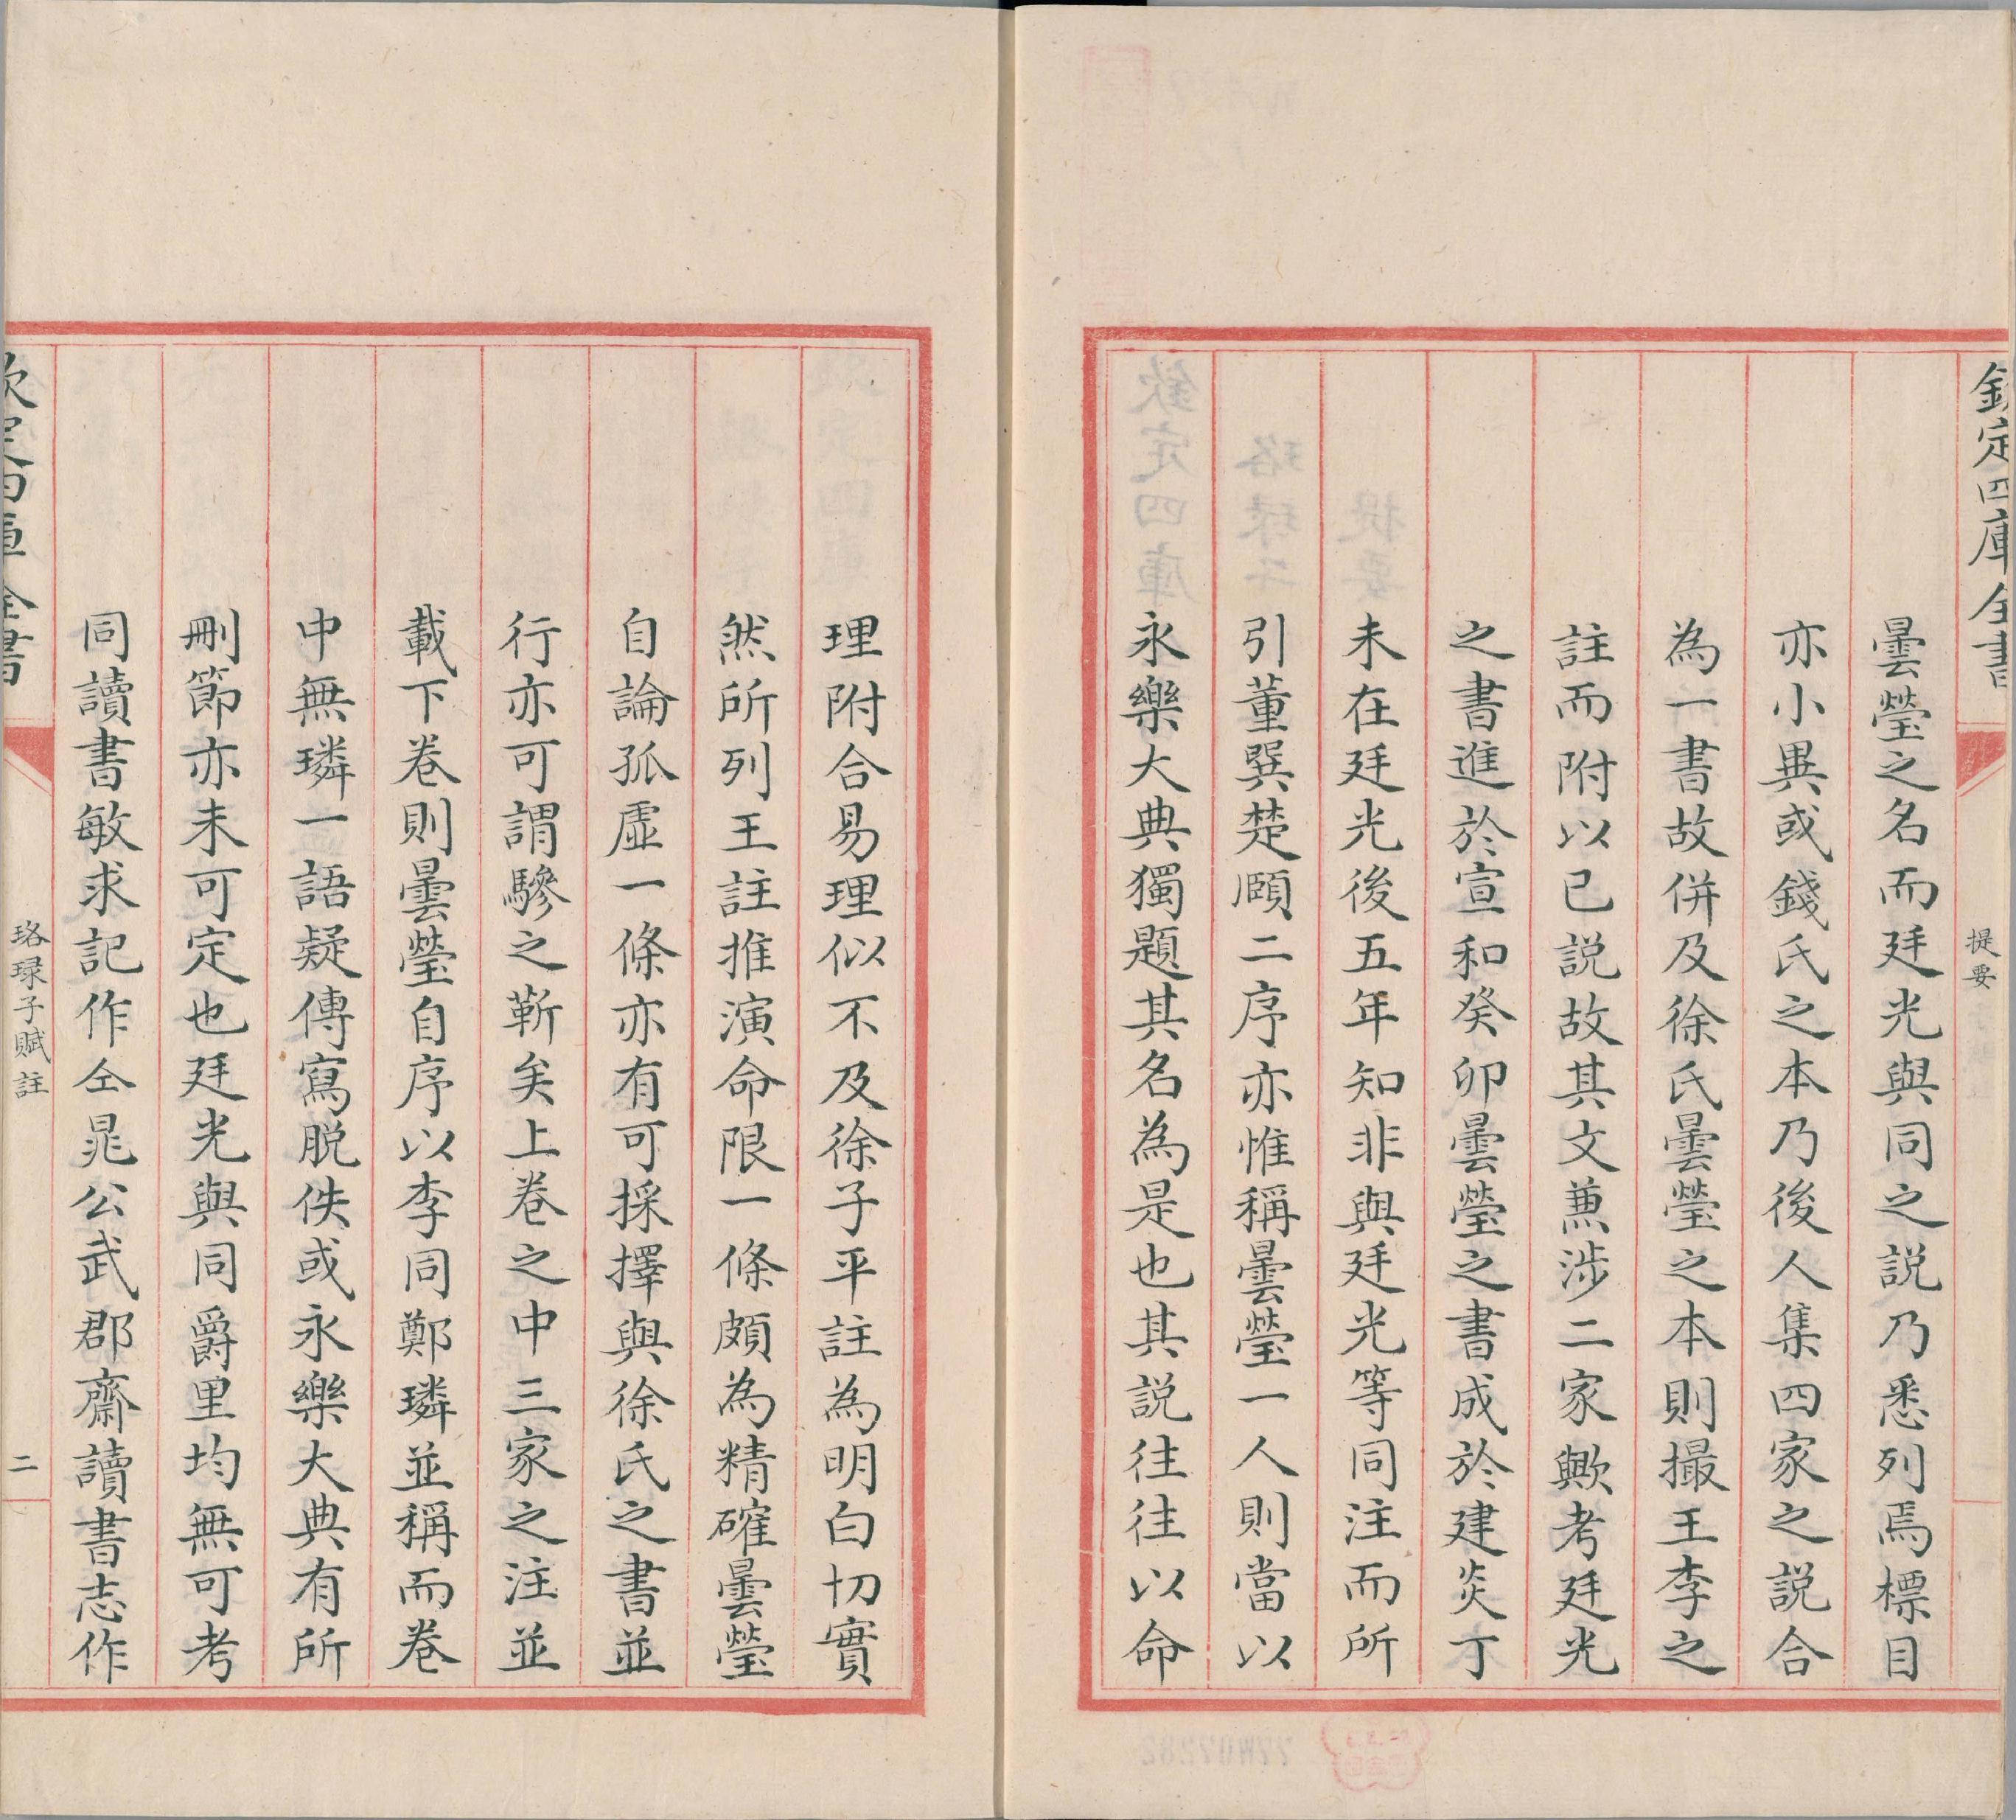 欽定四庫全書
提要
曇瑩之名而廷光與同之説乃悉列焉標目
亦小異或錢氏之本乃後人集四家之説合
為一書故併及徐氏曇瑩之本則撮王李之
註而附以已説故其文蕪涉二家歟考廷光
之書進於宣和癸卯曇瑩之書成於建炎丁
未在廷光後五年知非與廷光等同注而所
引董巽楚頤二序亦惟稱曇瑩一人則當以
永樂大典獨題其名為是也其説徃徃以命
理附合易理似不及徐子平註為明白切實
然所列王註推演命限一條頗為精確曇瑩
自論孤虛一條亦有可採擇與徐氏之書並
行亦可謂驂之靳矣上卷之中三家之注並
載下卷則曇瑩自序以李同鄭璘並稱而卷
中無璘一語疑傳寫脱佚或永樂大典有所
刪節亦未可定也廷光與同爵里均無可考
同讀書敏求記作仝晁公武郡齋讀書志作
欽定四庫全書
珞琭子賦註
二